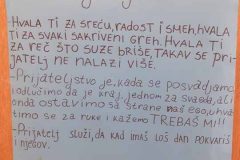 HVALA TI ZA SREĆU, RADOST I SMEH, HVALA
TI ZA SVAKI SAKRIVENI GREH. HVALA TI
ZA REČ ŠTO SUZE BRIŠE, TAKAV SE PRI-
JATELJ NE NALAZI VIŠE.
-Prijateljstvo je, kada se posvađamo
i odlučimo da je kraj, jednom za svađa, ali
onda ostavimo sa strane naš ego, uhva-
timo se za ruke i kažemo TREBAŠ MI!!
-Prijatelj služi, da kad imaš loš dan pokvariš
i njegov.